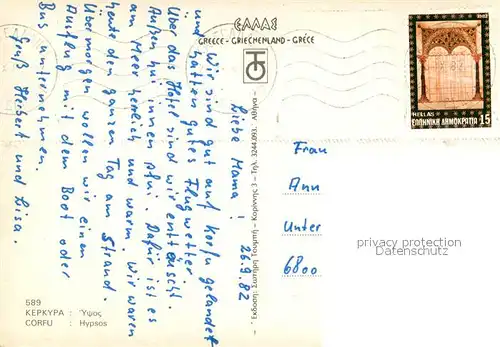 ΕΛΛΑΣ
GREECE - GRIECHENLAND - GRÈCE
1982
HELLAS
ΕΛΛΗΝΙΚΗ ΔΗΜΟΚΡΑΤΙΑ 15
26.9.82
Liebe Mama!
Wir sind gut auf Korfu gelandet
und hatten gutes Flugwetter.
Über das Hotel sind wir enttäuscht.
Außen hui, innen pfui. Dafür ist es
am Meer herrlich und warm. Wir waren
heute den ganzen Tag am Strand.
Übermorgen wollen wir einen
Ausflug mit dem Boot oder
Bus unternehmen.
Gruß Herbert und Lisa.
Frau
Ann
Unter
6800
privacy protection
Datenschutz
Έκδοση: Σωτήρη Τουμπή - Κορίννης 3 - Τηλ. 3244.693. - Αθήνα -
589
ΚΕΡΚΥΡΑ : Ύψος
CORFU : Hypsos